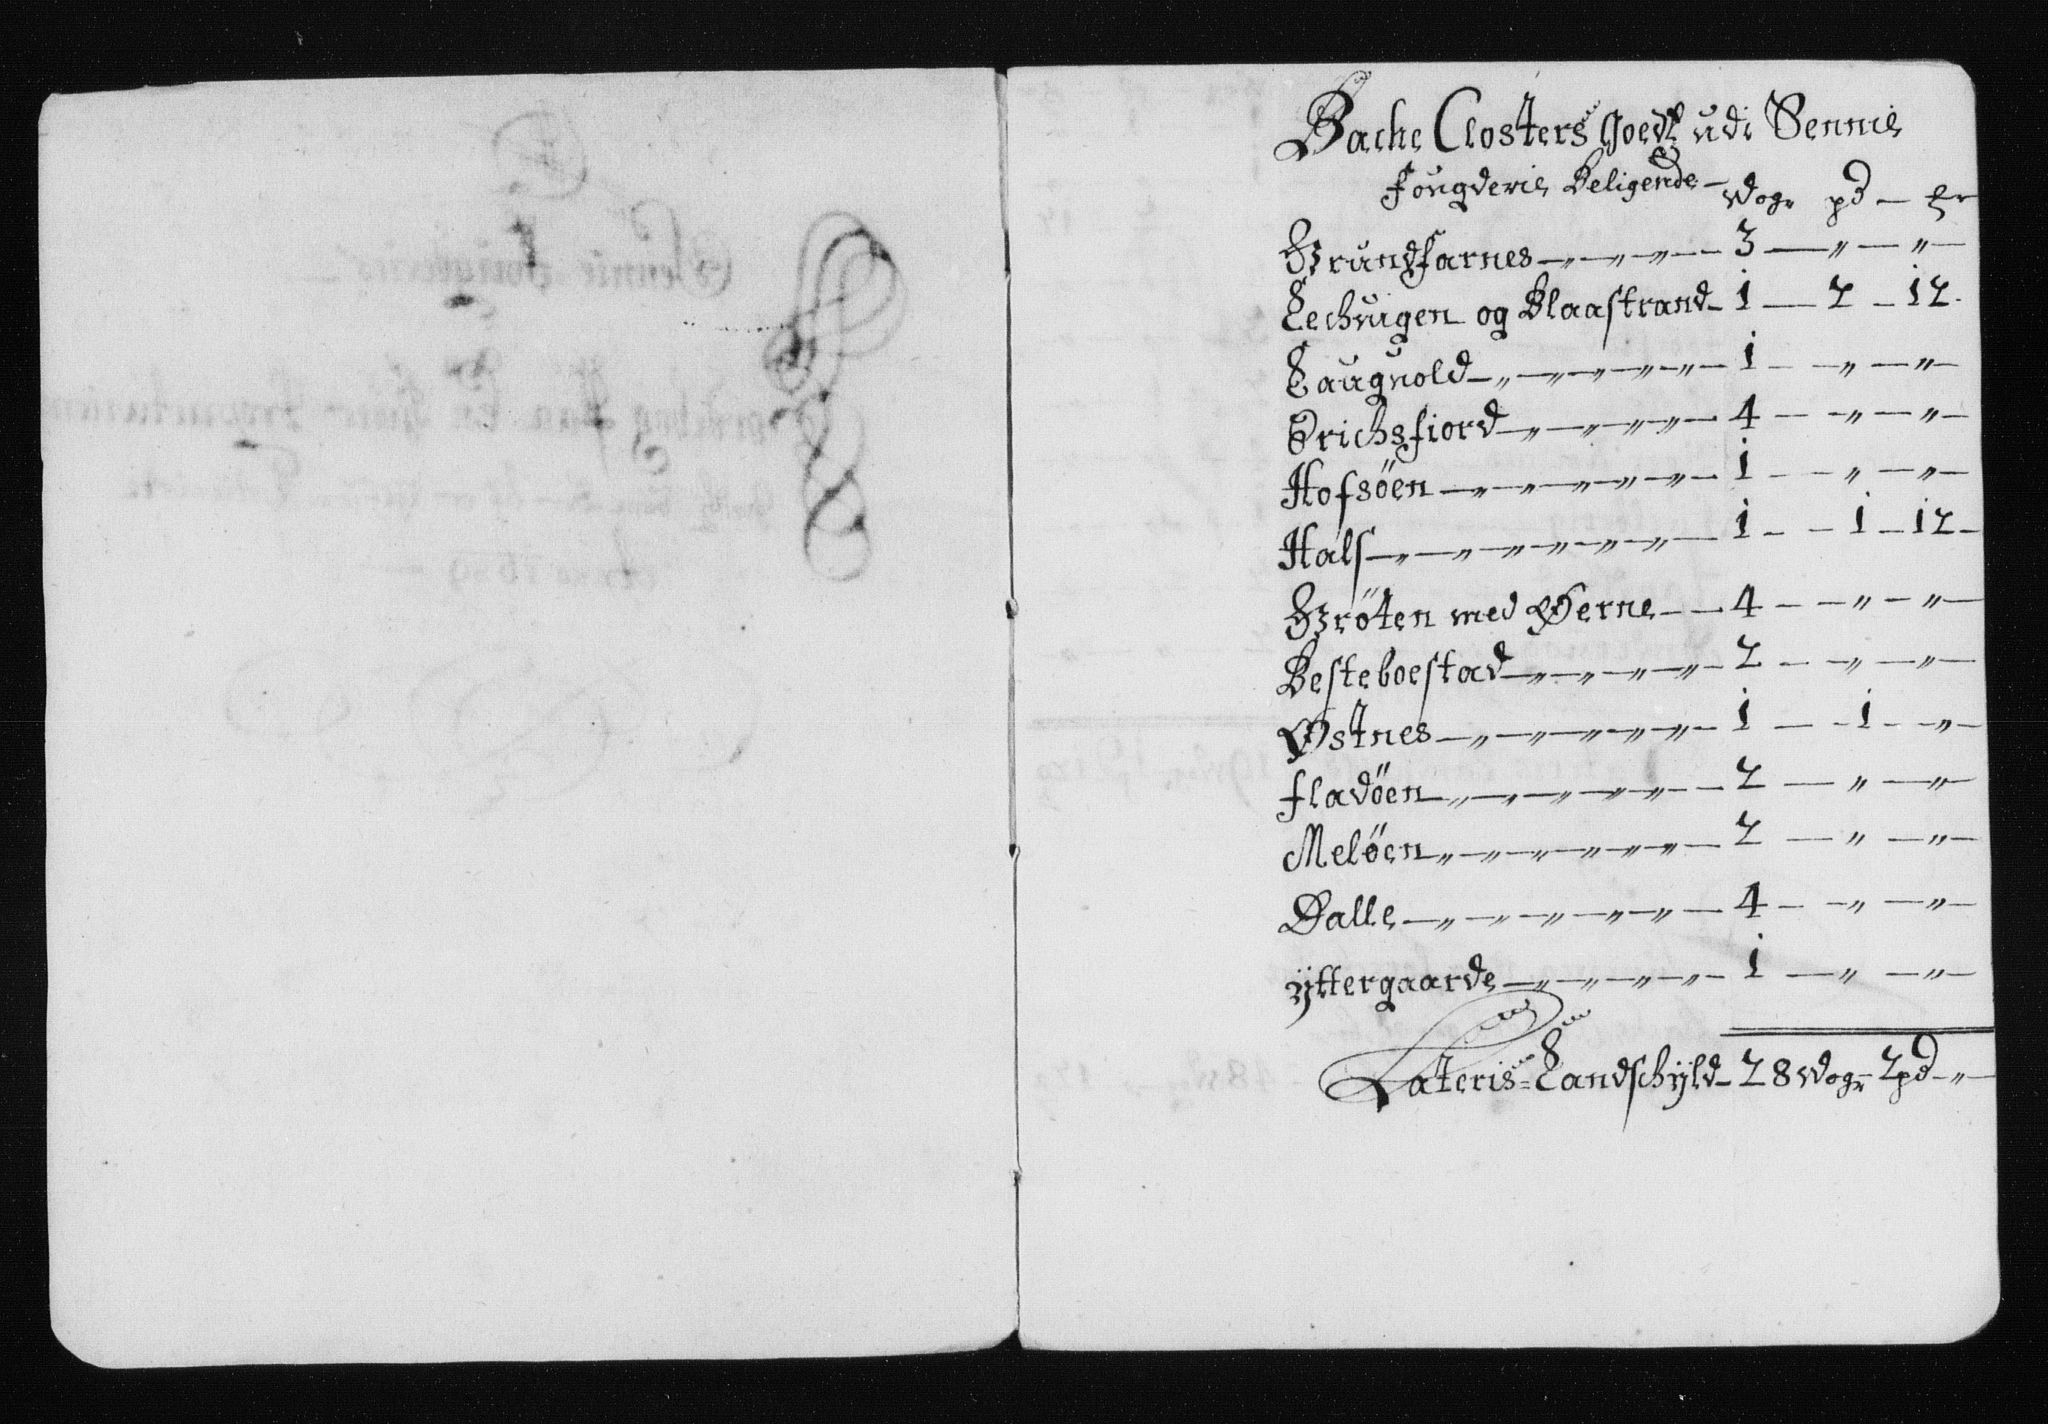 Bache Closters Goedtz udi Sennie
Fougderie Beligende – wogr pd – ℔r
Grundfarnes – „ – „ – „ – „ – 3 – „ – „ –
Lechvigen og Blaastrand – 1 – 2 – 12 –
Laugvold – „ – „ – „ – „ – „ – 1 – „ – „ –
Erichsfiord – „ – „ – „ – „ – 4 – „ – „ –
Hofsöen – „ – „ – „ – „ – „ – 1 – „ – „ –
Hals – „ – „ – „ – „ – „ – „ – 1 – 1 – 12 –
Gröten med Øerne – 4 – „ – „ –
Besteboestad – „ – „ – „ – „ – 2 – „ – „ –
Østnes – „ – „ – „ – „ – „ – 1 – 1 – „ –
fladöen – „ – „ – „ – „ – „ – 2 – „ – „ –
Melöen – „ – „ – „ – „ – „ – „ – 2 – „ – „ –
Dalle – „ – „ – „ – „ – „ – 4 – „ – „ –
ÿttergaarde – „ – „ – „ – „ – 1 – „ – „ –
Lateris = Landschÿld – 28 wogr 2 pd – „ –